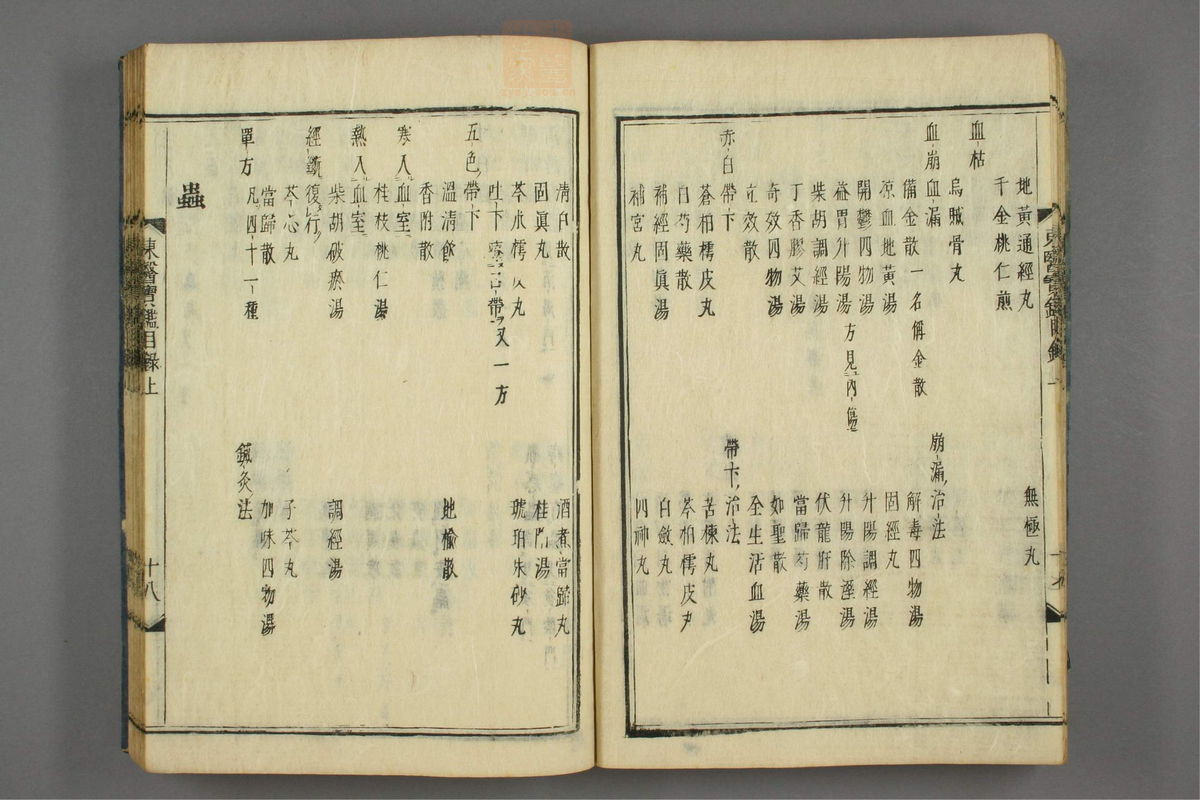 地黃通經丸 無極丸
千金桃仁煎
血枯
烏賊骨丸
血崩血漏 崩漏治法
備金散一名稱金散 解毒四物湯
涼血地黃湯 固經丸
開鬱四物湯 升陽調經湯
益胃升陽湯方見內傷 升陽除濕湯
柴胡調經湯 伏龍肝散
丁香膠艾湯 當歸芍藥湯
奇效四物湯 如聖散
立效散 全生活血湯
赤白帶下 帶下治法
蒼柏樗皮丸 苦楝丸
白芍藥散 芩柏樗皮丸
補經固眞湯 白斂丸
補宮丸 四神丸
東醫寶鑑目錄
清白散 酒煮當歸丸
固眞丸 桂附湯
芩朮樗皮丸 琥珀朱砂丸
吐下 帶又一方
五色帶下
溫清飮 地楡散
香附散
寒入血室
桂枝桃仁湯
熱入血室
柴胡破瘀湯 調經湯
經斷復行
芩心丸 子芩丸
當歸散 加味四物湯
單方凡四十一種 鍼灸法
蟲
東醫寶鑑目錄上 十八